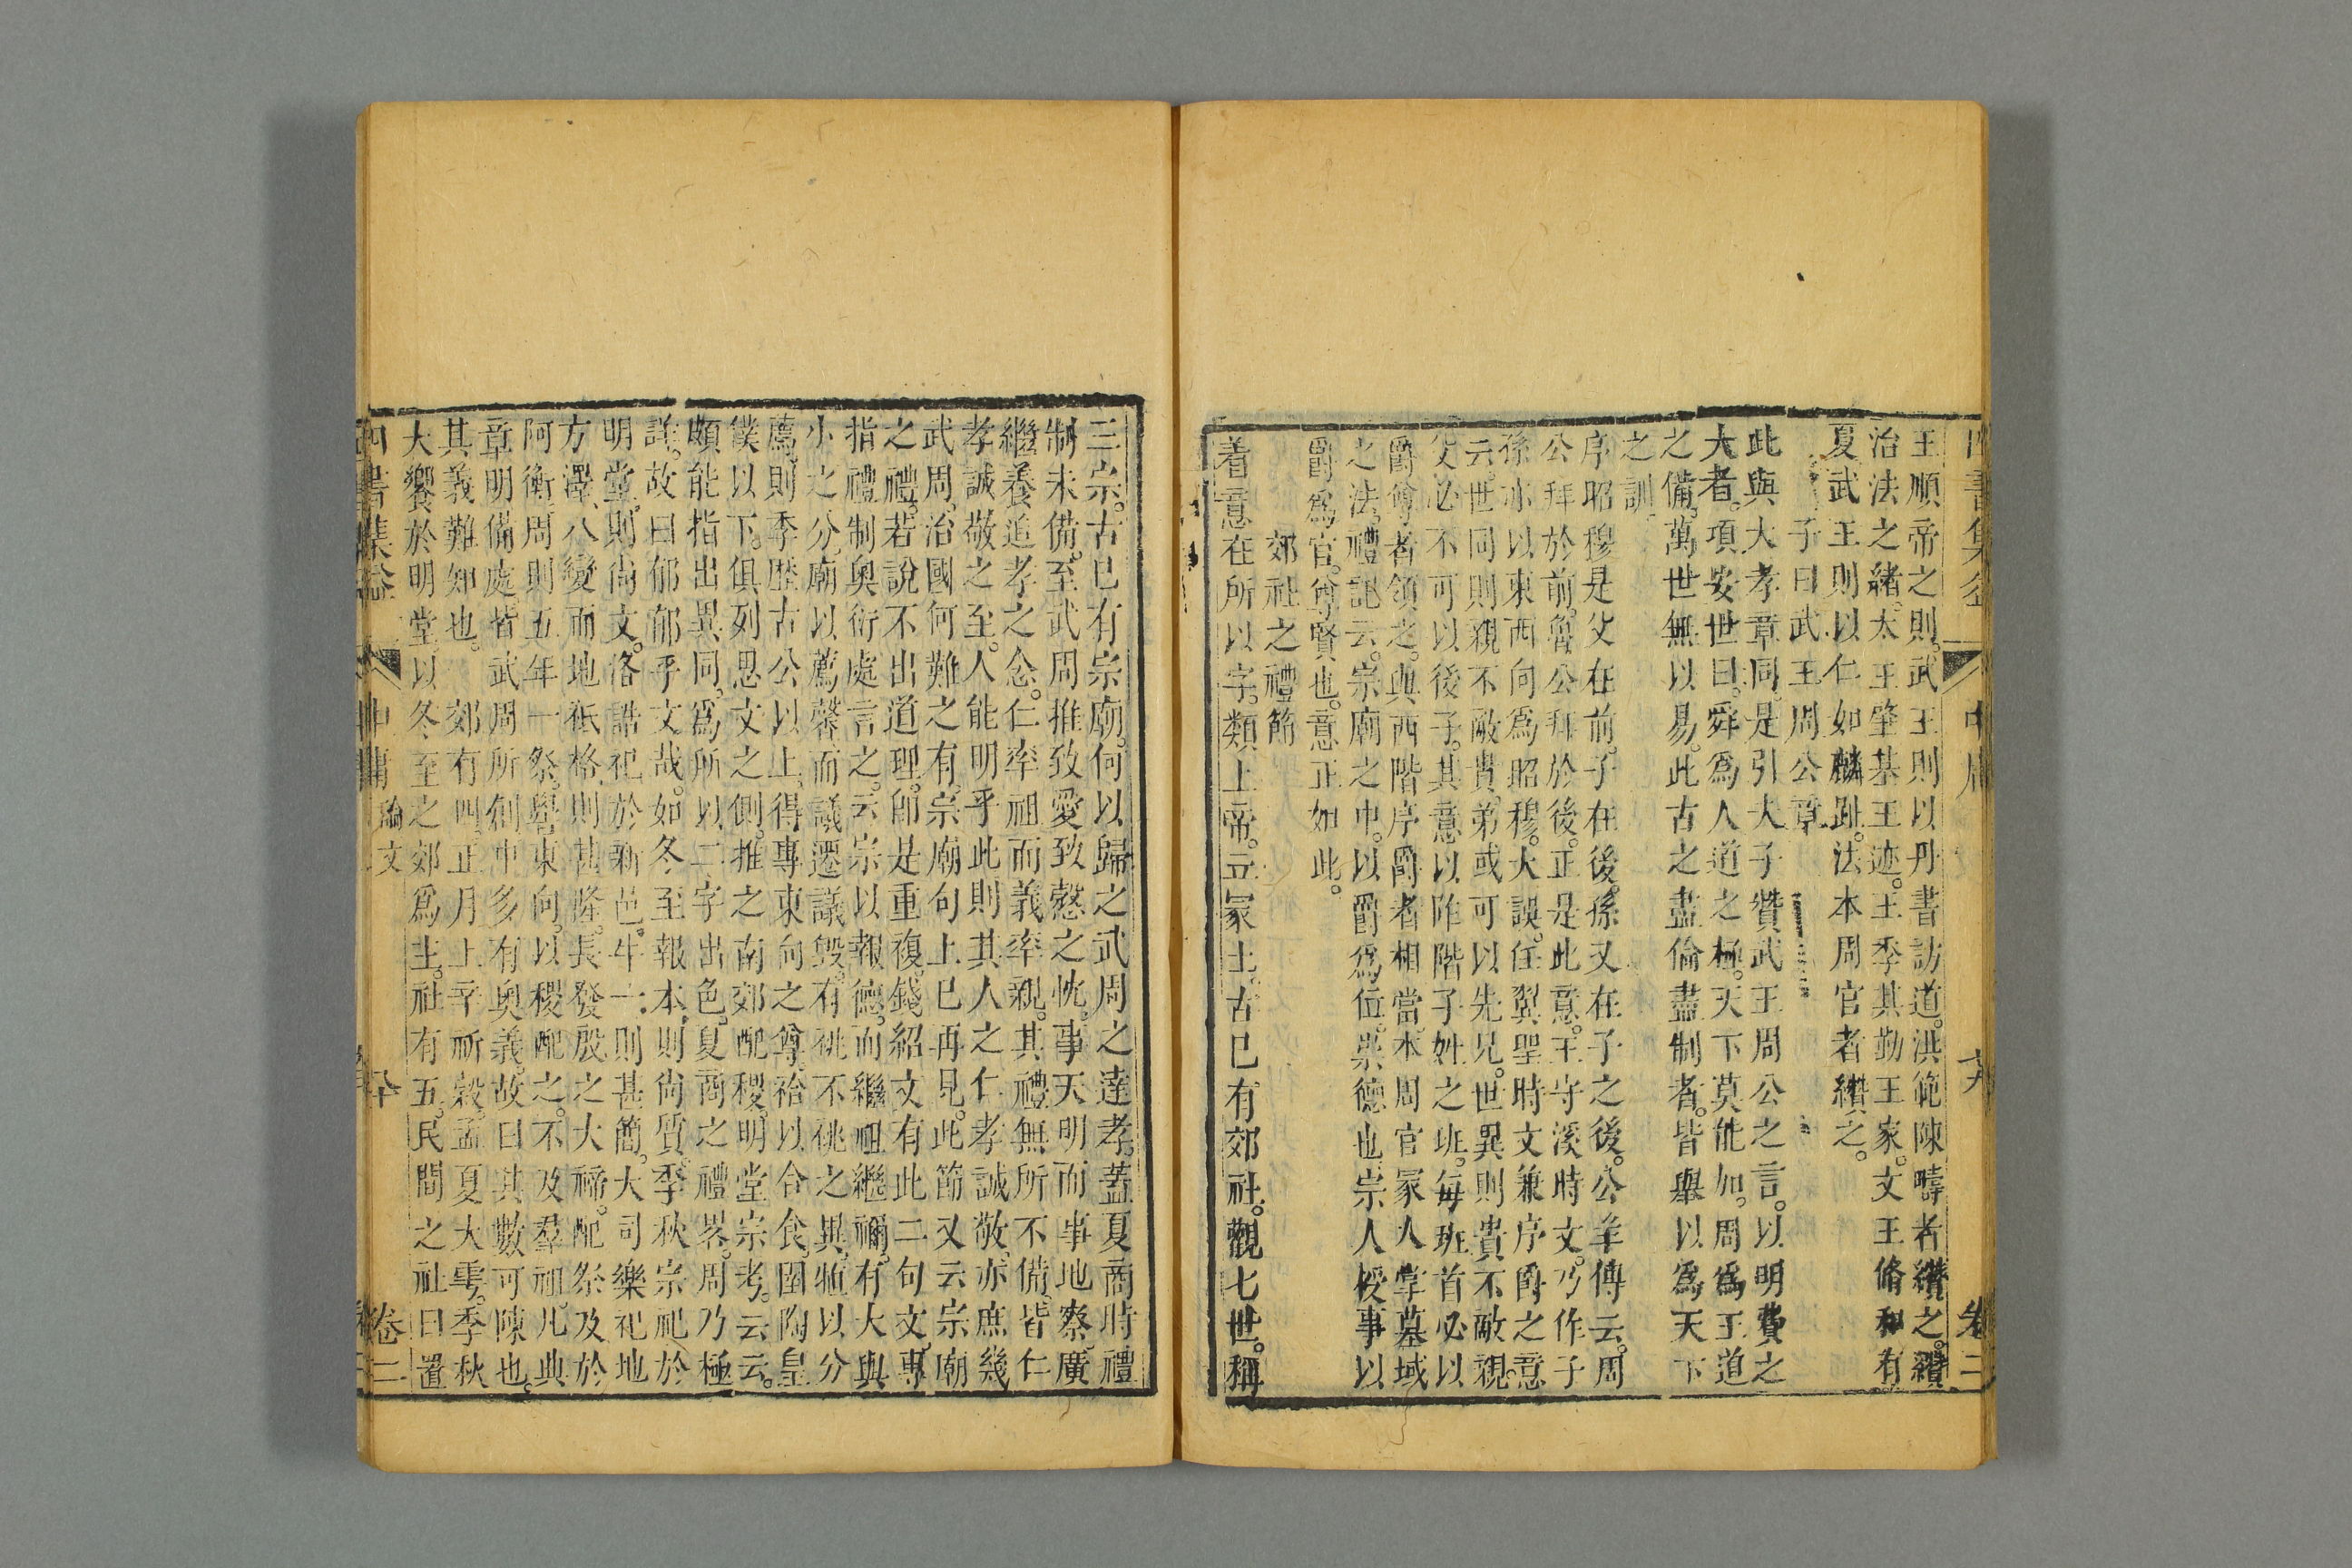 王順帝之則。武王則以丹書訪道。洪範陳疇者纘之。纘
治法之緒。太王肇基王迹。王季其勤王家。文王脩和有
夏武王則以仁如麟趾。法本周官者纘之。
子曰武王周公章
此與大孝章同。是引大子贊武王周公之言。以明費之
大者。項安世曰。舜爲人道之極。天下莫能加。周爲王道
之備。萬世無以易。此古之盡倫盡制者。皆舉以爲天下
之訓
序昭穆是父在前。子在後。孫又在子之後。公羊傳云。周
公拜於前。魯公拜於後。正是此意。王守溪時文。乃作子
孫亦以東西向爲昭穆。大誤。任翼聖時文兼序爵之意
云。世同則親不敵貴。弟或可以先兄。世異則貴不敵親。
父必不可以後子。其意以阼階子姓之班。每班首必以
爵尊者領之。與西階序爵者相當。本周官冢人掌墓域
之法。禮記云。宗廟之中。以爵爲位。崇德也宗人授事以
爵爲官。尊賢也。意正如此。
郊社之禮節
着意在所以字。類上帝。立冢土。古已有郊社。觀七世。稱
四書集益 中庸 卷二
三宗。古已有宗廟。何以歸之武周之達孝。蓋夏商時禮
制未備。至武周推致愛致慤之忱。事天明而事地察。廣
繼養追孝之念。仁率祖而義率親。其禮無所不備。皆仁
孝誠敬之至。人能明乎此則其人之仁孝誠敬。亦庶幾
武周。治國何難之有。宗廟句上已再見。此節又云宗廟
之禮。若說不出道理。卽是重複。錢紹文有此二句文。專
指禮制奧衍處言之。云宗以報德。而繼祖繼禰。有大與
小之分。廟以薦馨而議遷議毀。有祧不祧之異。牲以分
薦。則季歷古公以上。得專東向之尊。祫以合食。圉陶皇
僕以下。俱列思文之側。推之南郊配稷。明堂宗考。云云。
頗能指出異同。爲所以二字出色。夏商之禮畧。周乃極
詳。故曰郁郁乎文哉。如冬至報本。則尙質。季秋宗祀於
明堂。則尙文。洛誥祀於新邑。牛一。則甚簡。大司樂祀地
方澤。八變而地祇格。則甚隆。長發殷之大禘。配祭及於
阿衡。周則五年一祭。嚳東向。以稷配之。不及羣祖。凡典
章明備處。皆武周所創。中多有奧義。故曰其數可陳也。
其義難知也。郊有四。正月上辛祈穀。孟夏大雩。季秋
大饗於明堂。以冬至之郊爲主。社有五。民間之社曰置
四書集益 中庸 論文 卷二